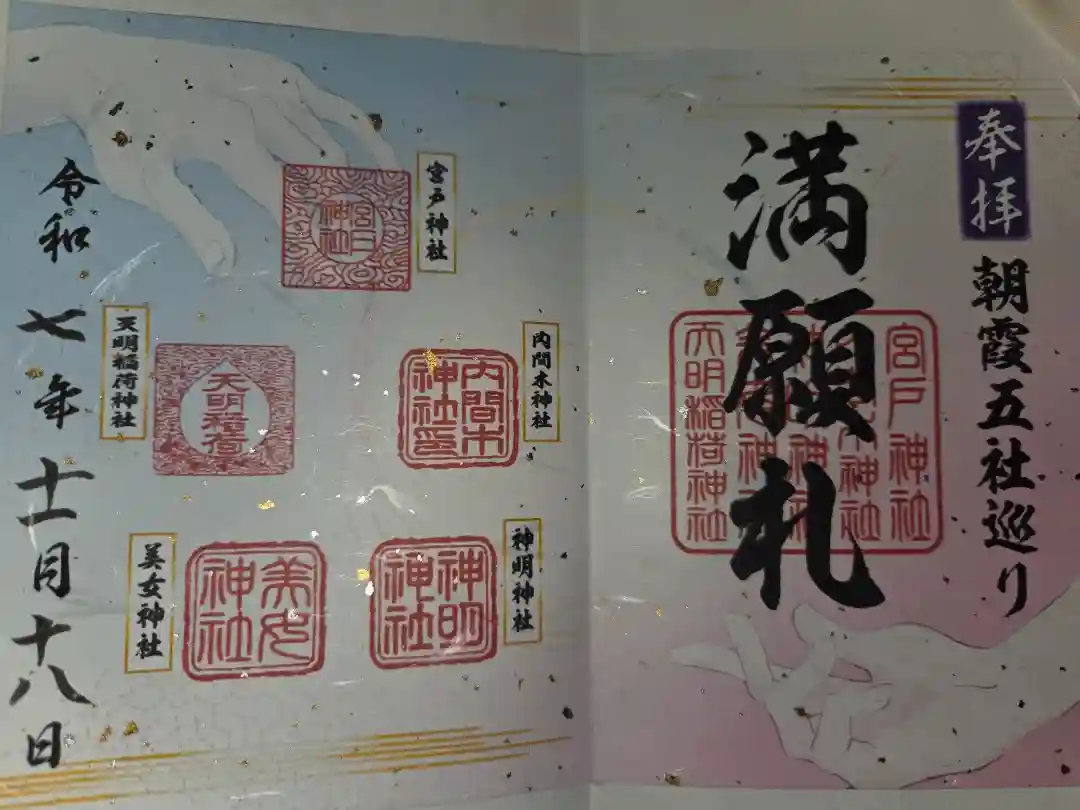 奉拝
朝霞五社巡り
満願札
宮戸神社
神社
神社
神社
天明稲荷神社
宮戸神社
宮戸
神社
内間木神社
内間木
神社印
神明神社
神明
神社
天明稲荷神社
天明稲荷
美女神社
美女
神社
令和七年十一月十八日